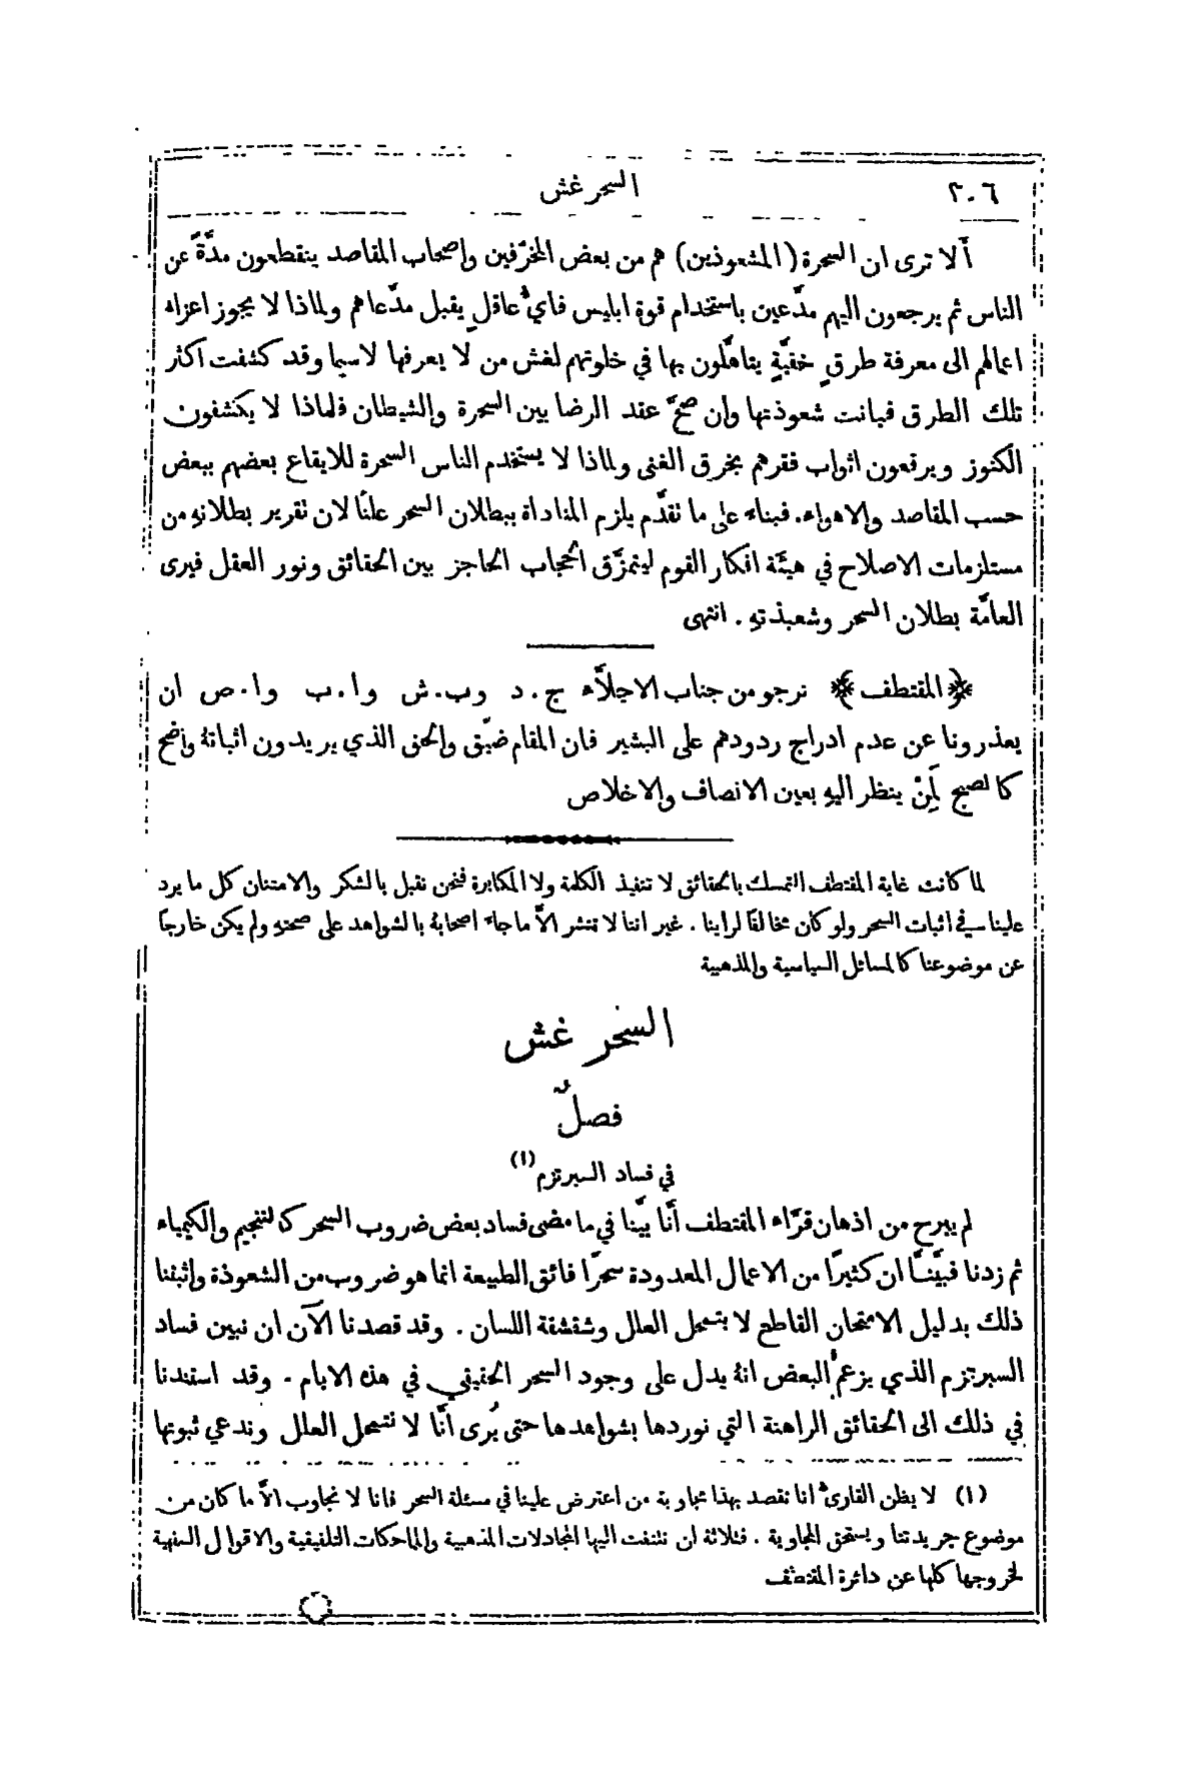 ٢٠٦
السحر غش
ألا ترى ان السحرة (المشعوذين) هم من بعض المخرّفين واصحاب المقاصد ينقطعون مدَّةً عن
الناس ثم يرجعون اليهم مدَّعين باستخدام قوة ابليس فايُّ عاقلٍ يقبل مدَّعاهم ولماذا لا يجوز اعزاء
اعمالهم الى معرفة طرقٍ خفيَّةٍ يتاهَّلون بها في خلوتهم لغش من لا يعرفها لاسيما وقد كشفت اكثر
تلك الطرق فبانت شعوذتها وان صحَّ عقد الرضا بين السحرة والشيطان فلماذا لا يكشفون
الكنوز ويرقعون اثواب فقرهم بخرق الغنى ولماذا لا يستخدم الناس السحرة للايقاع بعضهم ببعض
حسب المقاصد والاهواء. فبناء على ما تقدَّم يلزم المناداة ببطلان السحر علنًا لان تقرير بطلانهِ من
مستلزمات الاصلاح في هيئة افكار القوم ليتمزَّق الحجاب الحاجز بين الحقائق ونور العقل فيرى
العامَّة بطلان السحر وشعبذتهِ . انتهى
﴿المقتطف﴾ نرجو من جناب الاجلاَّء ج . د وب . ش وا . ب وا . ص ان
يعذرونا عن عدم ادراج ردودهم على البشير فان المقام ضيّق والحق الذي يريدون اثباتهُ واضح
كالصبح لِمَنْ ينظر اليهِ بعين الانصاف والاخلاص
لما كانت غاية المقتطف التمسك بالحقائق لا تنفيذ الكلمة ولا المكابرة فنحن نقبل بالشكر والامتنان كل ما يرد
علينا في اثبات السحر ولو كان مخالفًا لراينا . غير اننا لا ننشر الاَّ ما جاء اصحابهُ بالشواهد على صحتهِ ولم يكن خارجًا
عن موضوعنا كالمسائل السياسية والمذهبية
السحر غش
فصلٌ
في فساد السبرتزم (١)
لم يبرح من اذهان قرَّاء المقتطف أنَّا بيَّنا في ما مضى فساد بعض ضروب السحر كالتنجيم والكيمياء
ثم زدنا فبيَّنَّا ان كثيرًا من الاعمال المعدودة سحرًا فائق الطبيعة انما هو ضروب من الشعوذة واثبتنا
ذلك بدليل الامتحان القاطع لا بتمحل العلل وشقشقة اللسان . وقد قصدنا الآن ان نبين فساد
السبرتزم الذي يزعم البعض انهُ يدل على وجود السحر الحقيقي في هذه الايام . وقد استندنا
في ذلك الى الحقائق الراهنة التي نوردها بشواهدها حتى يُرى أنَّا لا نتمحل العلل وندعي ثبوتها
(١) لا يظن القارئ انا نقصد بهذا مجاوبة من اعترض علينا في مسئلة السحر فانا لا نجاوب الاَّ ما كان من
موضوع جريدتنا ويستحق المجاوبة . فثلاثة ان نلتفت اليها المجادلات المذهبية والماحكات التلفيقية والاقوال السفهية
لخروجها كلها عن دائرة المقتطف